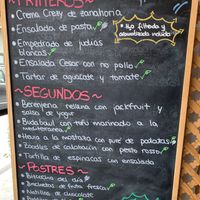 PRIMEROS
- Crema Crecy de zanahoria
- Ensalada de pasta
- Empedrado de judías
blancas
- Ensalada Cesar con no pollo
- Tartar de aguacate y tomate
* Agua filtrada y
alcalinizada incluida
~SEGUNDOS~
- Berenjena rellena con jackfruit y
salsa de yogur
- Buda bowl con tofu marinado a la
mediterranea
- Heura a la mostaza con puré de patatas
- Zoodles de calabacín con pesto rosso
- Tortilla de espinacas con ensalada
~POSTRES~
- Bizcocho del día
- Brochetas de fruta fresca
- Natillas de chocolate